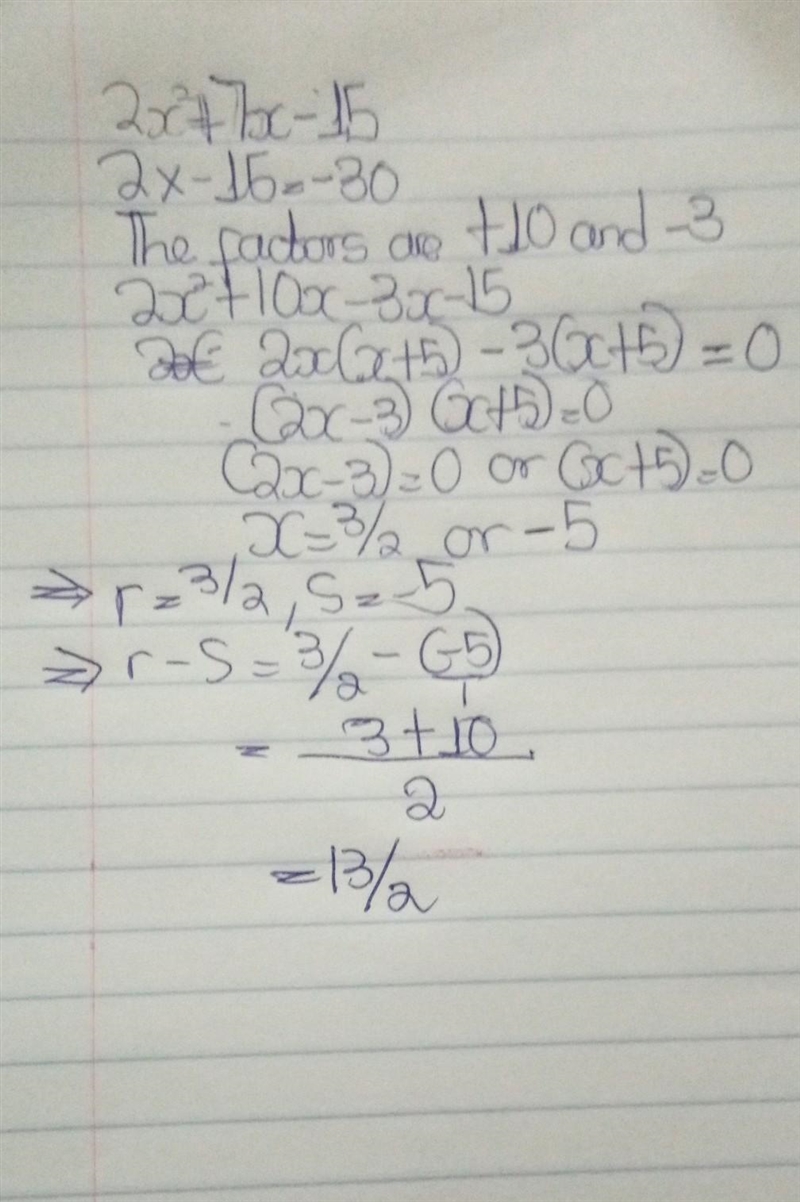 2x²+7x-15
2x-15=-30
The factors are +10 and -3
2x²+10x-3x-15
2x(x+5) - 3(x+5) = 0
(2x-3) (x+5)=0
(2x-3)=0 or (x+5)=0
x=3/2 or -5
⇒ r=3/2, S=-5
⇒ r-S=3/2-(-5)
1
= 3+10
2
=13/2